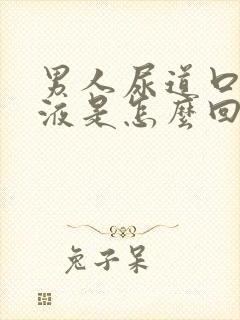 男人尿道口
液是怎麼回
兔子呆